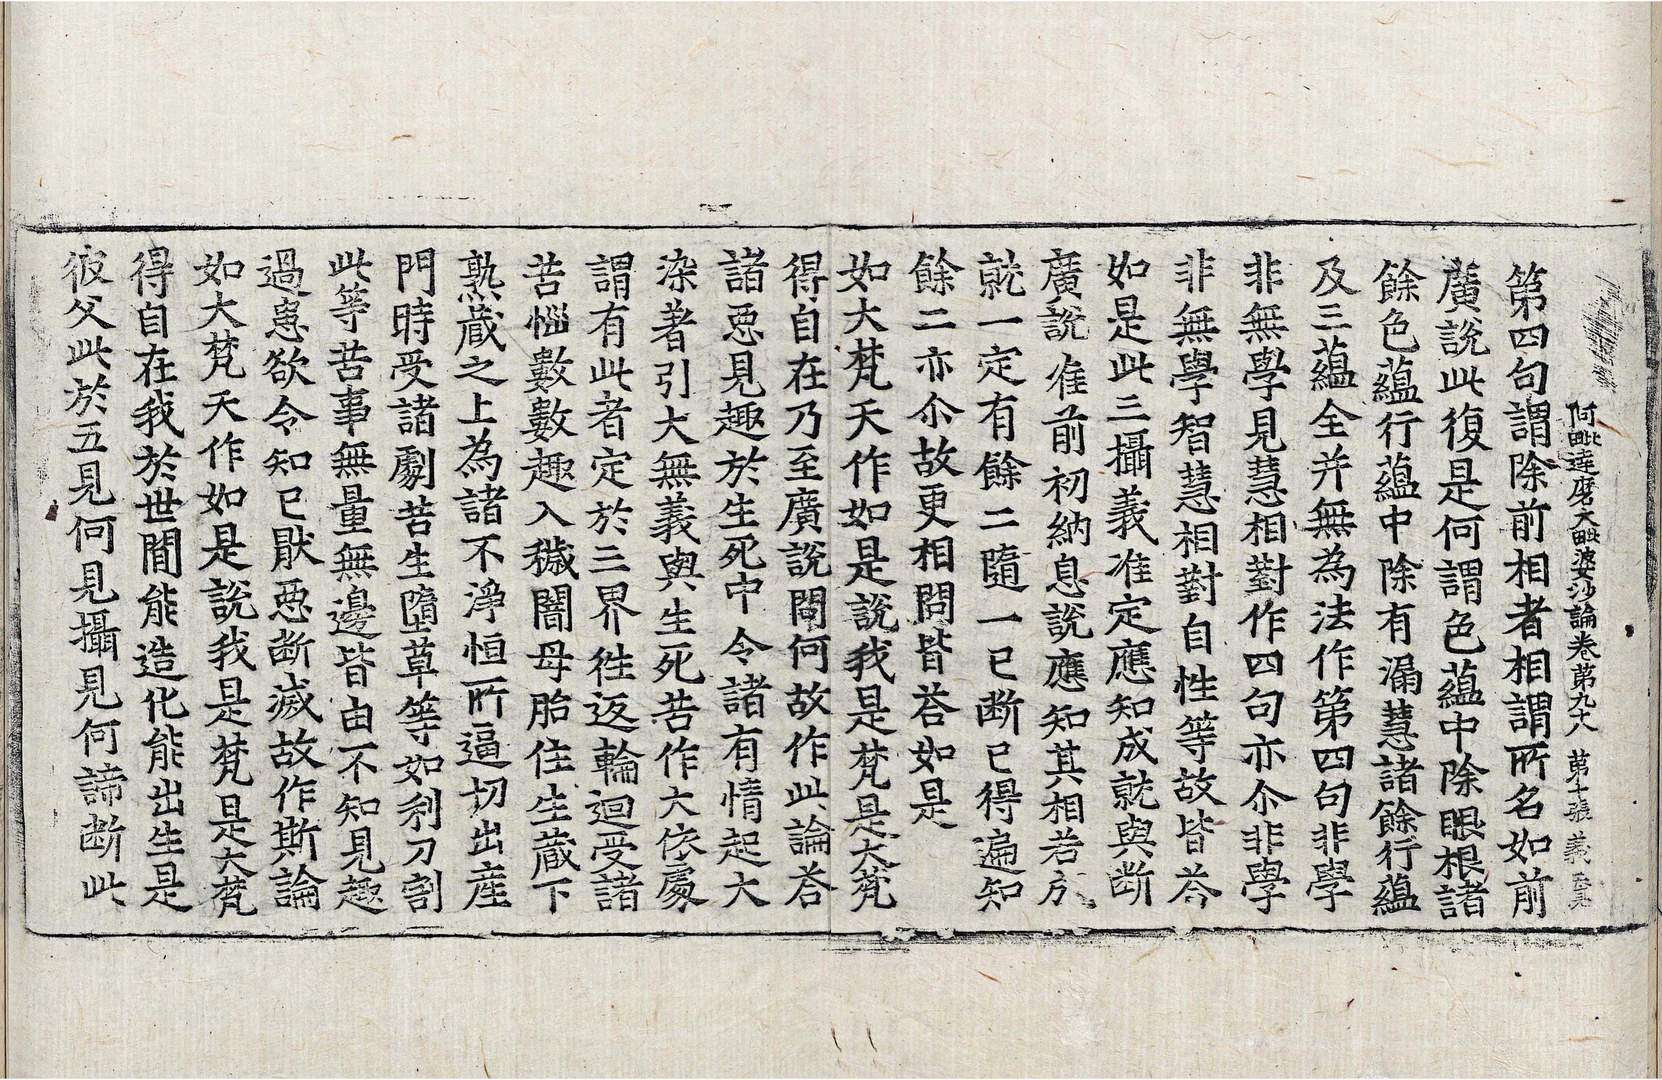 阿毗達磨大毗婆沙論卷第九十八　第十張　義
第四句謂除前相者相謂所名如前
廣說此復是何謂色蘊中除眼根諸
餘色蘊行蘊中除有漏慧諸餘行蘊
及三蘊全并無為法作第四句非學
非無學見慧相對作四句亦尒非學
非無學智慧相對自性等故皆荅
如是此三攝義准定應知成就與斷
廣說准前初納息說應知其相若於
就一定有餘二隨一已斷已得遍知
餘二亦尒故更相問皆荅如是
如大梵天作如是說我是梵是大梵
得自在乃至廣說問何故作此論荅
諸惡見趣於生死中令諸有情起大
染著引大無義與生死苦作大依處
謂有此者定於三界徃返輪迴受諸
苦惱數數趣入穢闇母胎住生藏下
熟藏之上為諸不淨恒所逼切出産
門時受諸劇苦生墮草等如利刀割
此等苦事無量無邊皆由不知見趣
過患欲令知已猒惡斷滅故作斯論
如大梵天作如是說我是梵是大梵
得自在我於世間能造化能出生是
彼父此於五見何見攝見何諦斷此